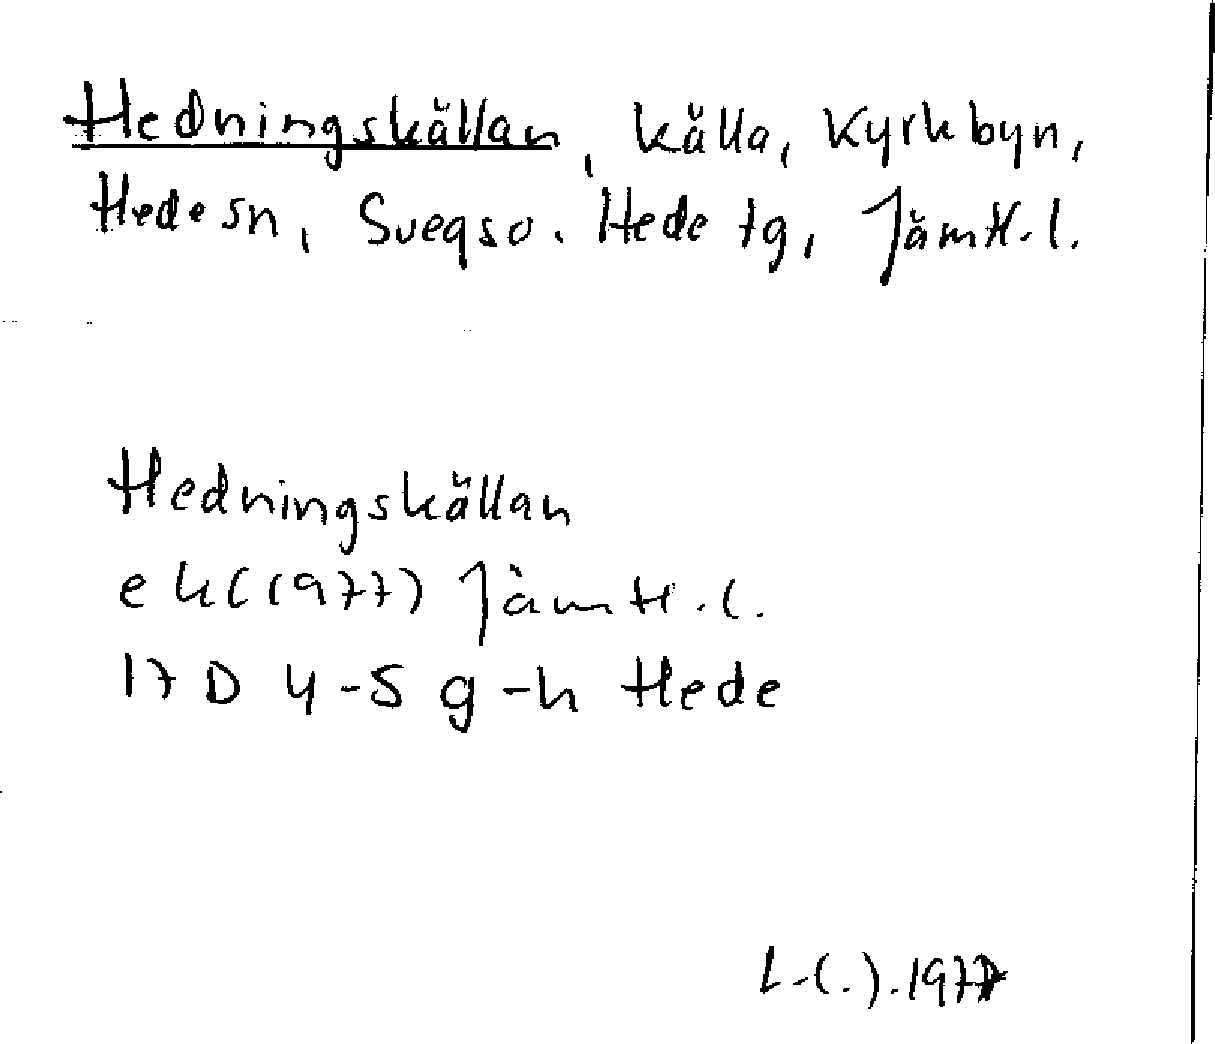 Hedningskällan, källa, Kyrkbyn,
Hede sn, Svegs o. Hede tg, Jämtl. l.
Hedningskällan
ek (1977) Jämtl. l.
17 D 4-5 g-h Hede
1977